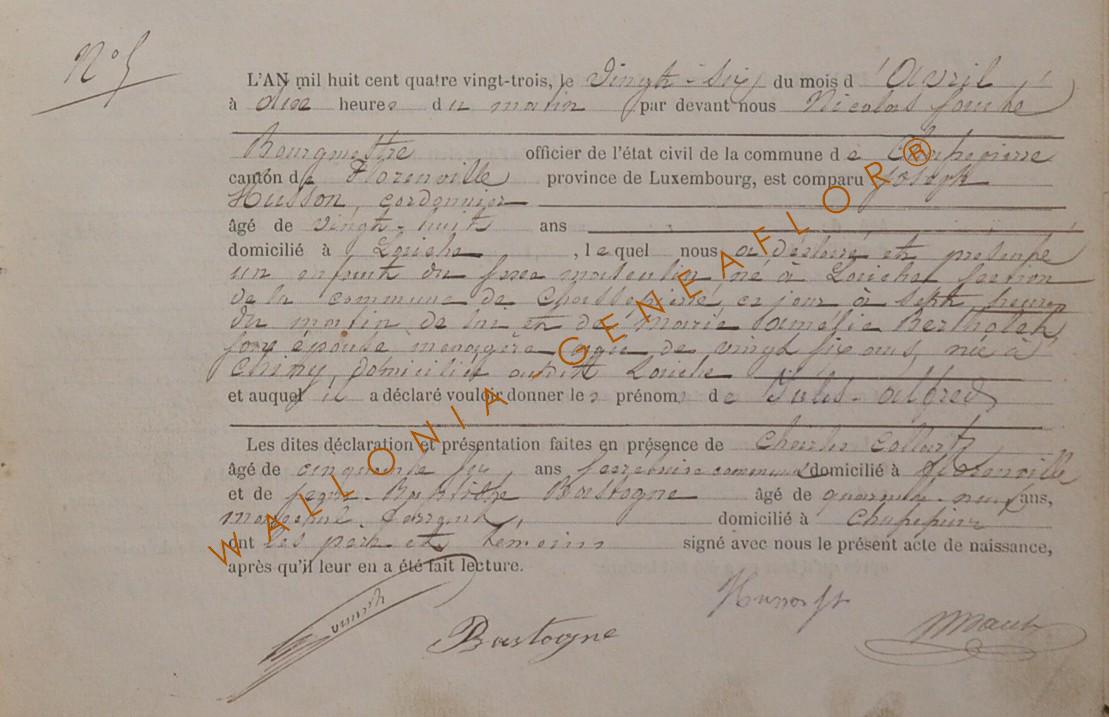 N° 5
L'AN mil huit cent quatre vingt-trois, le Vingt-Six du mois d'Avril
à dix heures du matin par devant nous Nicolas
Bourgmestre officier de l'état civil de la commune de Chassepierre
canton de Florenville province de Luxembourg, est comparu Joseph
Husson, cordonnier
âgé de vingt-huit ans
domicilié à Laiche, lequel nous a déclaré et présenté
un enfant du sexe masculin né à Laiche section
de la commune de Chassepierre, ce jour à sept heures
du matin de lui et de Marie Amélie Bertholet
son épouse ménagère âgée de vingt six ans, née à
Chiny, domiciliée audit Laiche
et auquel il a déclaré vouloir donner les prénoms de Jules-Alfred
Les dites déclaration et présentation faites en présence de Charles Collart
âgé de cinquante six ans secrétaire communal domicilié à Florenville
et de Jean-Baptiste Bastogne âgé de quarante-neuf ans,
maréchal ferrant, domicilié à Chassepierre
ont les père et témoins signé avec nous le présent acte de naissance,
après qu'il leur en a été fait lecture.
Bastogne
Husson
WALLONIA-GENEAFLOR®